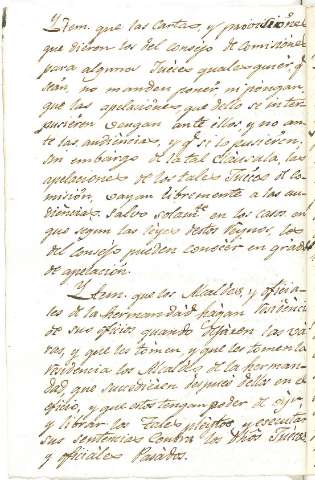 Ytem. que las Cartas, y provisiones
que dieron los del consejo de comisiones
para algunos Jueces qualesquier. q.
sean, no manden poner, ni pongan
que las apelaciones que dello se inter
pusieren vengan ante ellos y no an
te las audiencias, y q. si lo pusieren,
sin embargo de la tal clausula, las
apelaciones de los tales Jueces de co
misión, vayan libremente a las au
diencias salvo solam.te en los casos en
que segun las leyes destos Reynos, los
del consejo pueden conocer en grado
de apelación.
Ytem. que los Alcaldes, y oficia
les de la hermandad hagan residencia
de sus oficios quando dejaren las va
ras, y que les tomen, y que les tomen la
residencia los Alcaldes de la herman
dad que sucedieren despues dellos en el
oficio, y que estos tengan poder de oyr,
y librar los tales pleytos, y executar
sus sentencias contra los dhos Jueces
y oficiales Pasados.